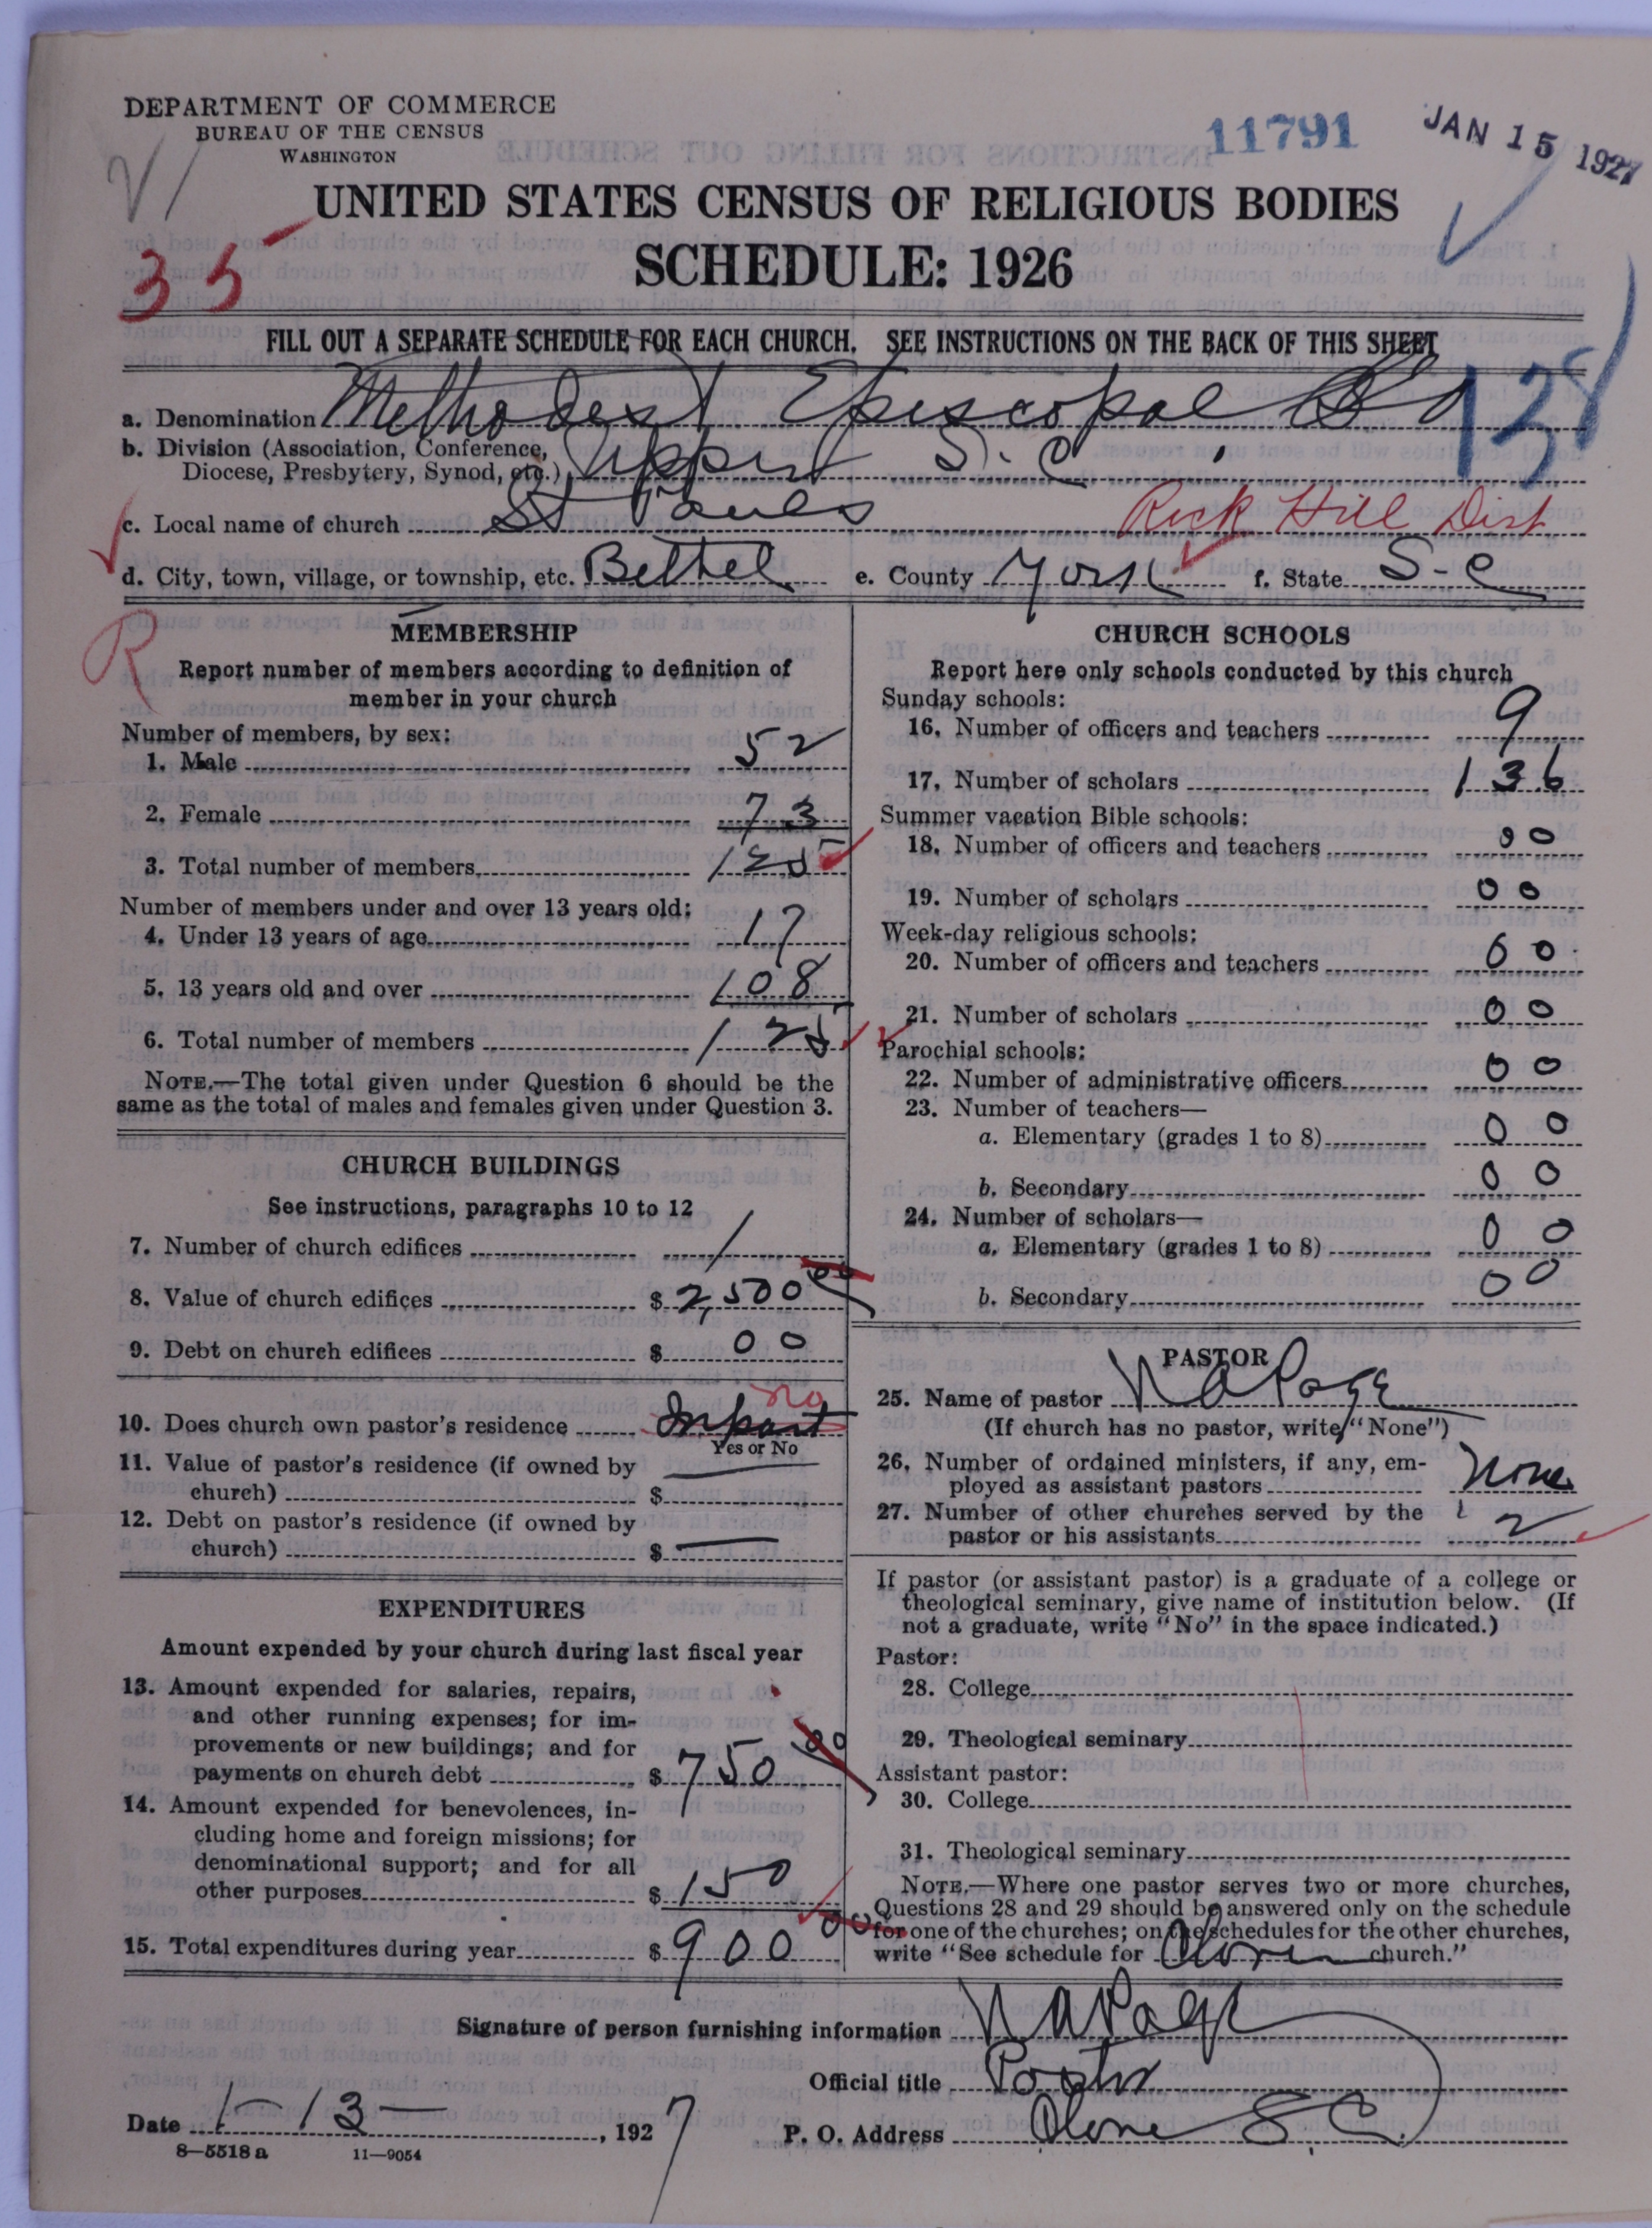 DEPARTMENT OF COMMERCE
BUREAU OF THE CENSUS
WASHINGTON
11791
JAN 15 1927
UNITED STATES CENSUS OF RELIGIOUS BODIES
35
SCHEDULE: 1926
FILL OUT A SEPARATE SCHEDULE FOR EACH CHURCH. SEE INSTRUCTIONS ON THE BACK OF THIS SHEET
138
a. Denomination Methodest Episcopal
b. Division (Association, Conference,
Diocese, Presbytery, Synod, etc.) Upper S. C.
c. Local name of church St Pauls Rock Hill Dist
d. City, town, village, or township, etc. Bethel e. County York f. State S-C
R
MEMBERSHIP
Report number of members according to definition of
member in your church
Number of members, by sex:
1. Male 52
2. Female 73
3. Total number of members 125
Number of members under and over 13 years old:
4. Under 13 years of age 17
5. 13 years old and over 108
6. Total number of members 125
NOTE.—The total given under Question 6 should be the
same as the total of males and females given under Question 3.
CHURCH BUILDINGS
See instructions, paragraphs 10 to 12
7. Number of church edifices 1
8. Value of church edifices $2,500 00
9. Debt on church edifices $ 00
no
10. Does church own pastor's residence In part
Yes or No
11. Value of pastor's residence (if owned by
church) $ —
12. Debt on pastor's residence (if owned by
church) $ —
EXPENDITURES
Amount expended by your church during last fiscal year
13. Amount expended for salaries, repairs,
and other running expenses; for im-
provements or new buildings; and for
payments on church debt $ 750 00
14. Amount expended for benevolences, in-
cluding home and foreign missions; for
denominational support; and for all
other purposes $ 150
15. Total expenditures during year $ 900 00
CHURCH SCHOOLS
Report here only schools conducted by this church
Sunday schools:
16. Number of officers and teachers 9
17. Number of scholars 136
Summer vacation Bible schools:
18. Number of officers and teachers 00
19. Number of scholars 00
Week-day religious schools:
20. Number of officers and teachers 00
21. Number of scholars 00
Parochial schools:
22. Number of administrative officers 00
23. Number of teachers—
a. Elementary (grades 1 to 8) 00
b. Secondary 00
24. Number of scholars—
a. Elementary (grades 1 to 8) 00
b. Secondary 00
PASTOR
25. Name of pastor N A Page
(If church has no pastor, write "None")
26. Number of ordained ministers, if any, em-
ployed as assistant pastors None
27. Number of other churches served by the
pastor or his assistants 2
If pastor (or assistant pastor) is a graduate of a college or
theological seminary, give name of institution below. (If
not a graduate, write "No" in the space indicated.)
Pastor:
28. College
29. Theological seminary
Assistant pastor:
30. College
31. Theological seminary
NOTE.—Where one pastor serves two or more churches,
Questions 28 and 29 should be answered only on the schedule
for one of the churches; on the schedules for the other churches,
write "See schedule for church."
Signature of person furnishing information N A Page
Official title Pastor
Date 1-13-, 1927
P. O. Address S. C.
8—5518 a 11—9054